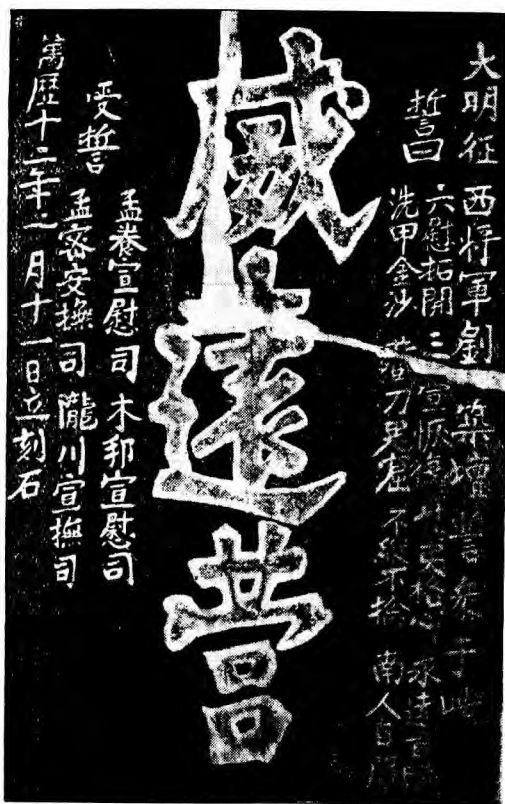 大明征西将軍劉築壇誓衆于此
誓曰
六慰拓開 三宣恢復 諸夷格心 永遠貢賦
洗甲金沙 藏刀鬼窟 不縱不擒 南人自服
威遠營
受誓
孟養宣慰司 木邦宣慰司
孟密安撫司 隴川宣撫司
萬歷十二年二月十一日立刻石